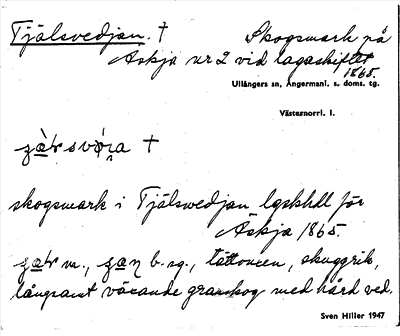 Tjälsvedjan. † Skogsmark på
Äskja nr 2 vid lagaskiftet
1865.
Ullångers sn, Ångermanl. s. doms. tg.
Västernorrl. l.
†
skogsmark i Tjälsvedjan lgskhdl för
Äskja 1865.
m., b. sg., tättvuxen, skuggrik,
långsamt växande granskog med hård ved.
Sven Hiller 1947